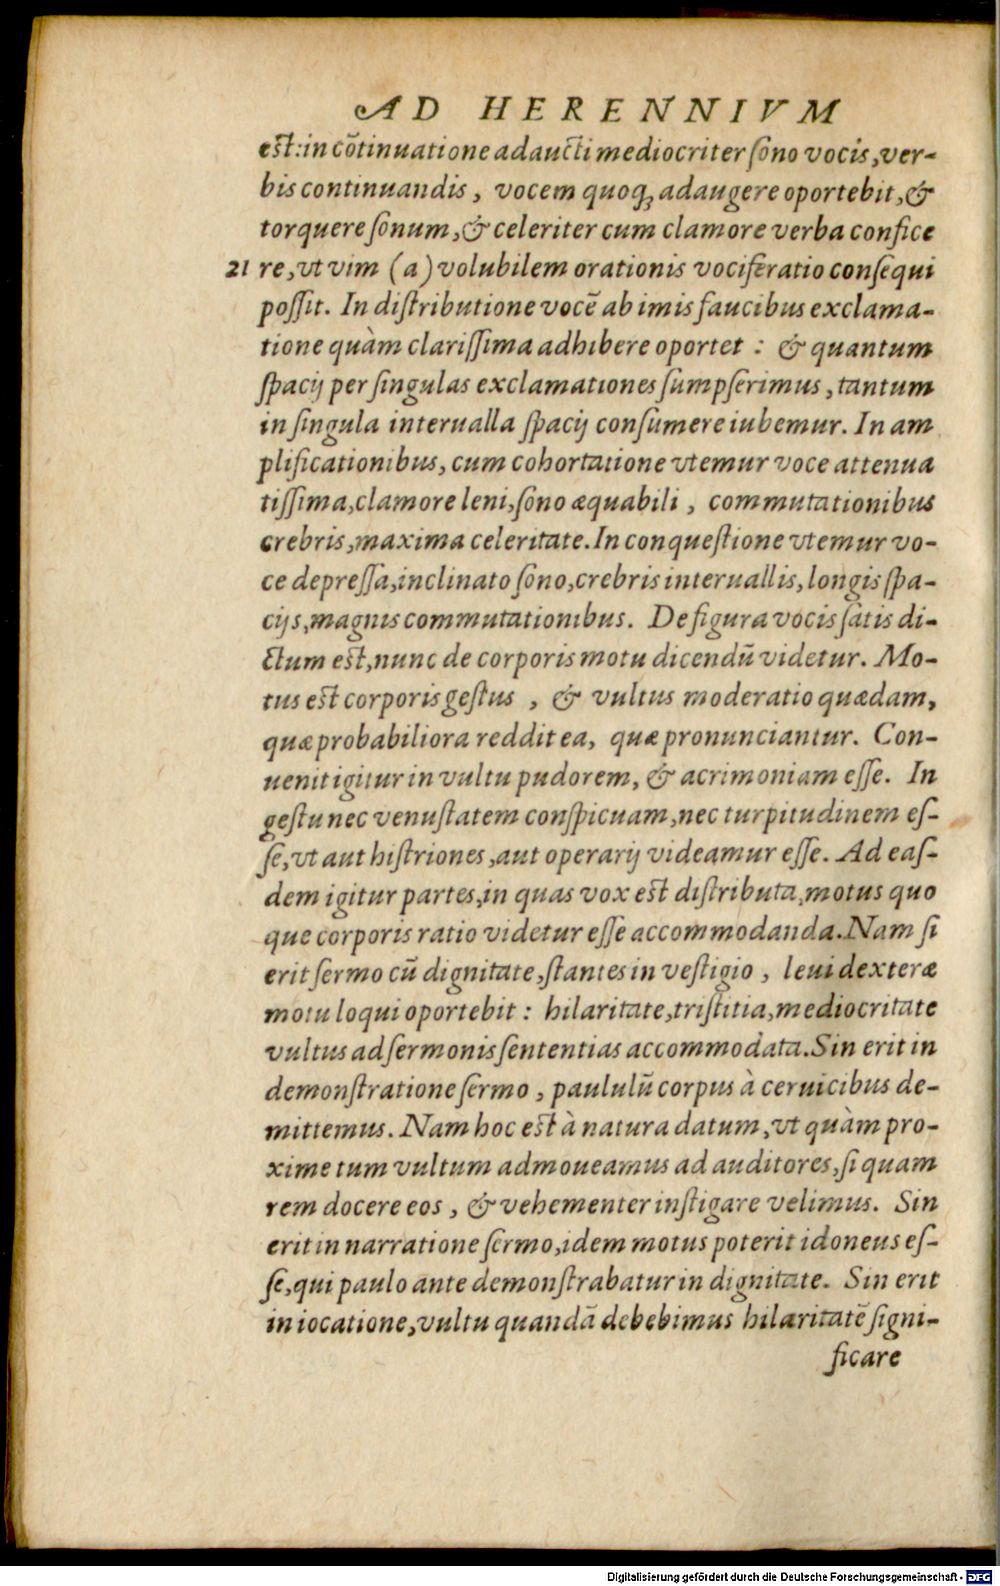 AD HERENNIVM
est:in cõtinuatione adaucti mediocriter sono vocis,ver-
bis continuandis, vocem quoq; adaugere oportebit,&
torquere sonum,& celeriter cum clamore verba confice
21 re,vt vim (a) volubilem orationis vociferatio consequi
possit. In distributione vocẽ ab imis faucibus exclama-
tione quàm clarissima adhibere oportet : & quantum
spacij per singulas exclamationes sumpserimus, tantum
in singula interualla spacij consumere iubemur. In am
plificationibus, cum cohortatione vtemur voce attenua
tissima,clamore leni,sono æquabili, commutationibus
crebris,maxima celeritate. In conquestione vtemur vo-
ce depressa,inclinato sono,crebris interuallis,longis spa-
cijs,magnis commutationibus. De figura vocis satis di-
ctum est,nunc de corporis motu dicendũ videtur. Mo-
tus est corporis gestus , & vultus moderatio quædam,
quæ probabiliora reddit ea, quæ pronunciantur. Con-
uenit igitur in vultu pudorem, & acrimoniam esse. In
gestu nec venustatem conspicuam,nec turpitudinem es-
se,vt aut histriones,aut operarij videamur esse. Ad eas-
dem igitur partes,in quas vox est distributa,motus quo
que corporis ratio videtur esse accommodanda. Nam si
erit sermo cũ dignitate,stantes in vestigio , leui dexteræ
motu loqui oportebit : hilaritate,tristitia,mediocritate
vultus ad sermonis sententias accommodata. Sin erit in
demonstratione sermo , paululũ corpus à ceruicibus de-
mittemus. Nam hoc est à natura datum,vt quàm pro-
xime tum vultum admoueamus ad auditores,si quam
rem docere eos , & vehementer instigare velimus. Sin
erit in narratione sermo,idem motus poterit idoneus es-
se,qui paulo ante demonstrabatur in dignitate. Sin erit
in iocatione,vultu quandã debebimus hilaritatẽ signi-
ficare
Digitalisierung gefördert durch die Deutsche Forschungsgemeinschaft - DFG